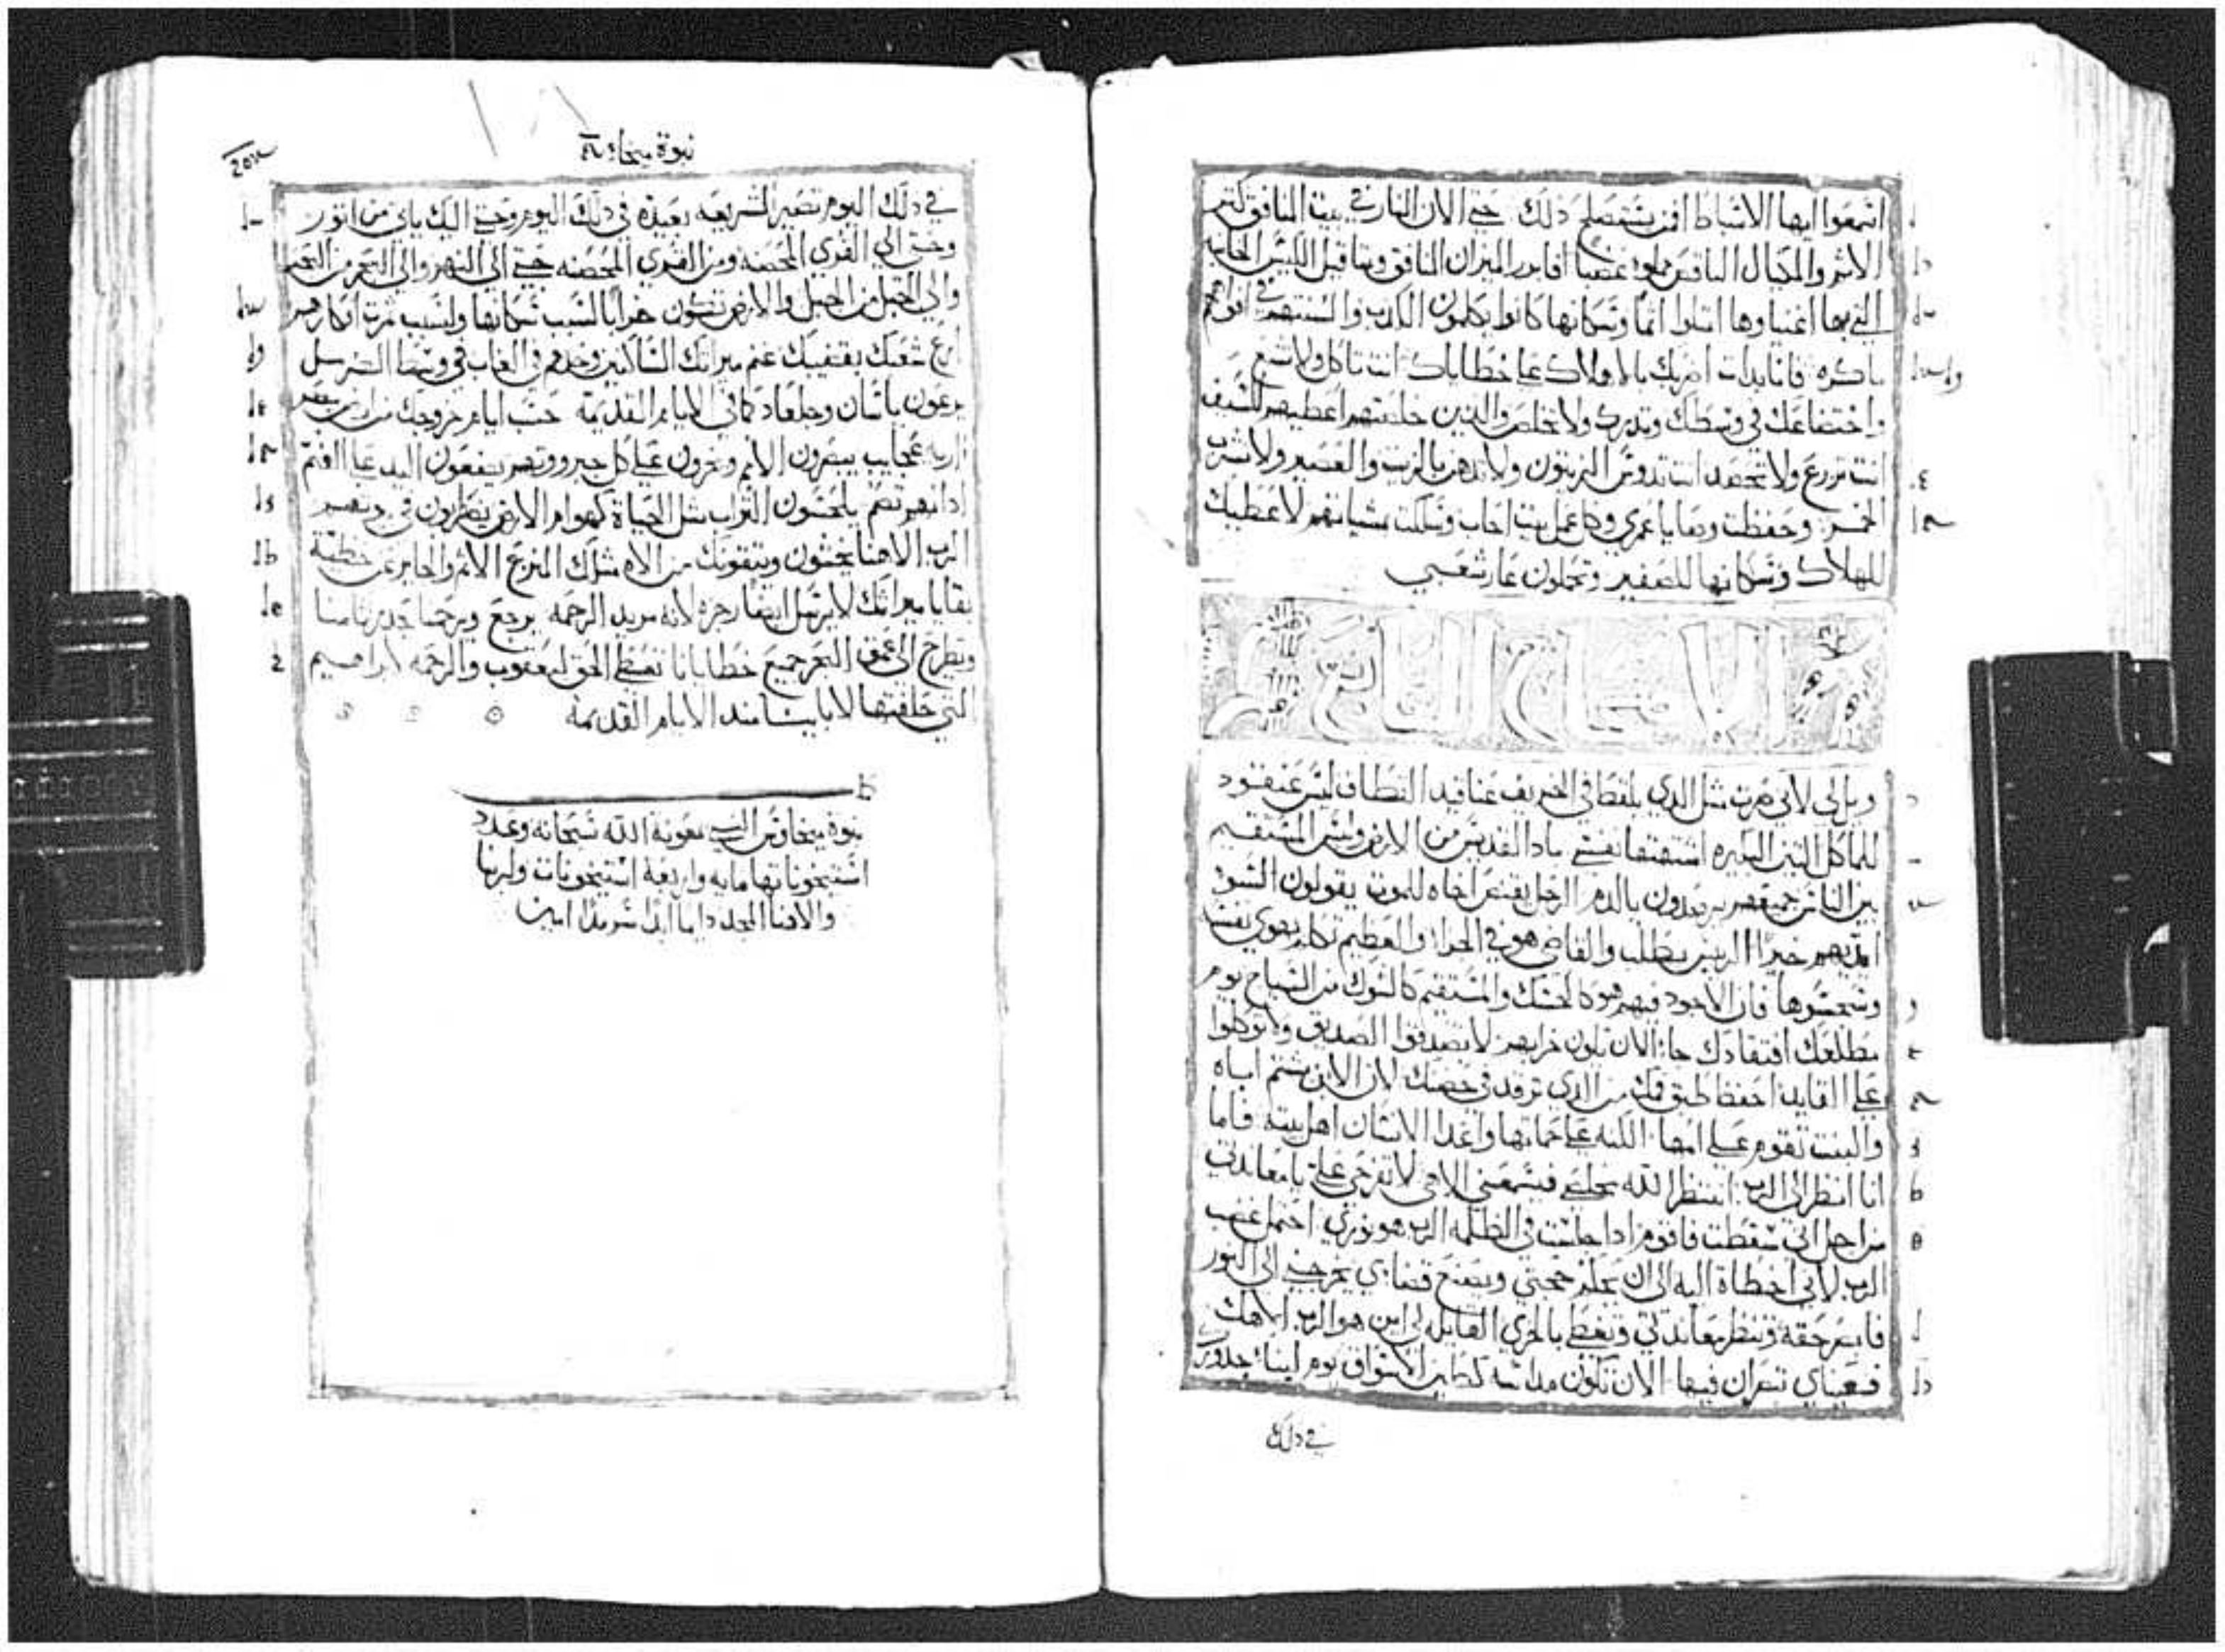 اسمعوا ايها الاسباط افمن يستصلح ذلك حتي الان النار في بيت المنافق كنز
الاثم والمكيال الناقص مملوء غضبا افابرر الميزان المنافق ومثاقيل الكيس الخايبه
التي بها اغنياوها امتلوا اثما وسكانها كانوا يكلمون الكذب والسنتهم في افواههم
ماكره فانا بدات اضربك بالاهلاك علي خطاياك انت تاكل ولا تشبع
واختضاعك في وسطك وتدرك ولا تخلص والذين خلصتهم اعطيهم للسيف
انت تزرع ولا تحصد انت تدوس الزيتون ولا تدهن بالزيت والعصير ولا تشرب
الخمر وحفظت وصايا عمري وكل عمل بيت احاب وسلكت بمشياتهم لاعطيك
للهلاك وسكانها للصفير وتحملون عار شعبي
الاصحاح السابع
ويل لي لاني صرت مثل الذي يلقط في الخريف عناقيد القطاف ليس عنقود
للماكل التين البكيره اشتهتها نفسي باد القديس من الارض وليس المستقيم
بين الناس جميعهم يرصدون بالدم الرجل يقتنص اخاه للموت يقولون السوء
ايديهم خيرا الريس يطلب والقاضي هو في الجزاء والعظيم تكلم بهوي نفسه
وسجسوها فان الاجود فيهم هو كالحسك والمستقيم كالشوك من السياج يوم
مطلعك افتقادك جاء الان تكون خرابهم لا تصدقوا الصديق ولا توكلوا
علي القايد احفظ طبق فمك من الذي ترقد في حضنك لان الابن يشتم اباه
والبنت تقوم علي امها الكنه علي حماتها واعدا الانسان اهل بيته فاما
انا انظر الي الرب انتظر الله مخلصي فيسمعني الاهي لا تفرحي علي يا معاندتي
من اجل اني سقطت فاقوم اذا جلست في الظلمه الرب هو نوري احتمل غضب
الرب لاني اخطاة اليه الي ان يحكم حجتي ويصنع قضاءي يخرجني الي النور
فابصر حقه وتنظر معاندتي وتغطي بالخزي القايله لي اين هو الرب الاهك
فعيناي تنظران فيها الان تكون مداسه كطين الاسواق يوم لبناء جدورك
في ذلك
نبوة ميخا
في ذلك اليوم تصير الشريعه بعيده في ذلك اليوم وحتي اليك ياتي من اثور
وحتي الي القري المحصنه ومن القري المحصنه حتي الي النهر والي البحر من البحر
والي الجبل من الجبل والارض تكون خرابا لسبب سكانها ولسبب ثمرة افكارهم
ارع شعبك بقضيبك غنم ميراتك الساكنين وحدهم في الغاب في وسط الكرمل
يرعون باشان وجلعاد كما في الايام القديمة حسب ايام خروجك من ارض مصر
اريه عجايب يبصرون الامم ويخزون علي كل جبروتهم يضعون اليد علي الفم
اذانهم تصم يلحسون التراب مثل الحياة كهوام الارض يضطربون في بيوتهم
الرب الاهنا يخشون ويتقونك من الاه مثلك المنزع الاثم والجايز عن خطية
بقايا ميراثك لا يرسل ايضا رجزه لانه مريد الرحمه يرجع ويرحمنا جدير ثامنا
ويطرح الي عمق البحر جميع خطايانا تعطي الحق ليعقوب والرحمه لابراهيم
التي حلفتها لابايتنا منذ الايام القديمة
نبوة ميخا وقس النبي بمعونة الله سبحانه وعدد
استيخوناتها مايه واربعة استيخونات ولربنا
والاهنا المجد دايما ابدا سرمدا امين